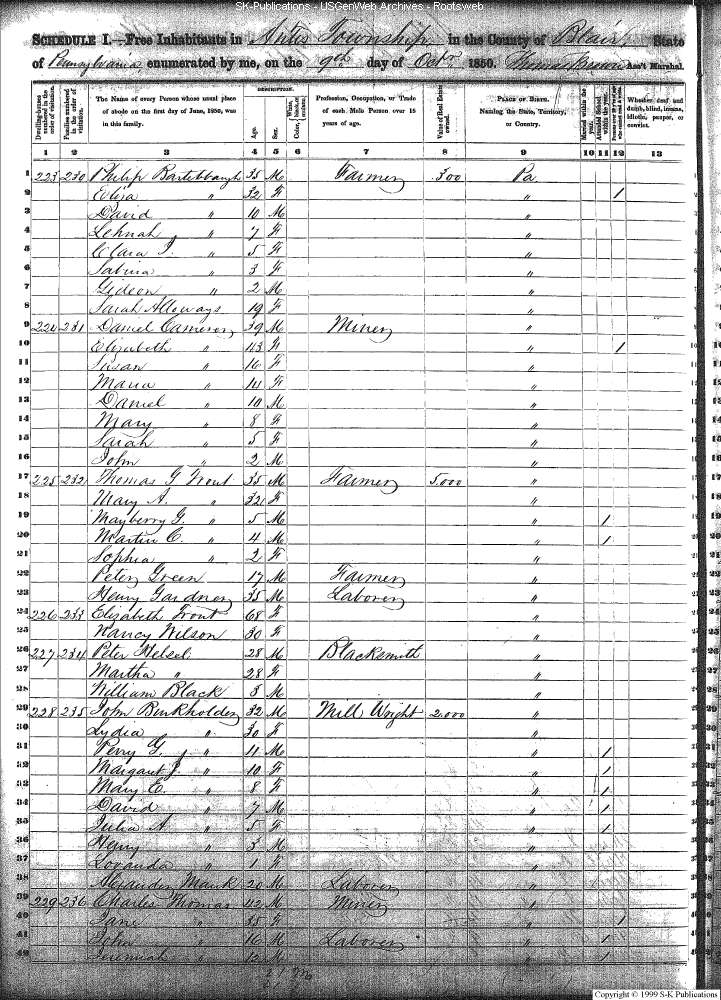 SK-Publications - USGenWeb Archives - Rootsweb
SCHEDULE I.—Free Inhabitants in Antis Township in the County of Blair State
of Pennsylvania enumerated by me, on the 9th day of Octr 1850. Thomas Ass't Marshal.
Dwelling-houses numbered in the order of visitation.
Families numbered in the order of visitation.
The Name of every Person whose usual place of abode on the first day of June, 1850, was in this family.
DESCRIPTION.
Age.
Sex.
White, Color, black, or mulatto.
Profession, Occupation, or Trade of each Male Person over 15 years of age.
Value of Real Estate owned.
PLACE OF BIRTH. Naming the State, Territory, or Country.
Married within the year.
Attended School within the year.
Persons over 20 y'rs of age who cannot read & write.
Whether deaf and dumb, blind, insane, idiotic, pauper, or convict.
1 2 3 4 5 6 7 8 9 10 11 12 13
1 223 230 Philip Bartebbaugh 35 M Farmer 300 Pa
2 Eliza " 32 F " /
3 David " 10 M "
4 Lehnah " 7 F "
5 Clara J. " 5 F "
6 Sabina " 3 F "
7 Gideon " 2 M "
8 Sarah Alloways 19 F "
9 224 231 Daniel Cameron 39 M Miner "
10 Elizabeth " 43 F " /
11 Susan " 16 F "
12 Maria " 14 F "
13 Daniel " 10 M "
14 Mary " 8 F "
15 Sarah " 5 F "
16 John " 2 M "
17 225 232 Thomas G Trout 35 M Farmer 5.000 "
18 Mary A. " 32 F "
19 Mayberry G. " 5 M " /
20 Martin C. " 4 M " /
21 Sophia " 2 F "
22 Peter Green 17 M Farmer "
23 Henry Gardner 35 M Laborer "
24 226 233 Elizabeth Trout 68 F "
25 Nancy Wilson 30 F "
26 227 234 Peter Helsel 28 M Blacksmith "
27 Martha " 28 F "
28 William Black 3 M "
29 228 235 John Burkholder 32 M Mill Wright 2.000 "
30 Lydia " 30 F "
31 Perry G. " 11 M " /
32 Margaret J. " 10 F " /
33 Mary E. " 8 F " /
34 David " 7 M " /
35 Julia A " 5 F " /
36 Henry " 3 M "
37 Lovanda " 1 F "
38 Alexander Mauk 20 M Laborer "
39 229 236 Charles Thomas 42 M Miner "
40 Jane " 35 F " /
41 John " 16 M Laborer " /
42 Jeremiah " 12 M " /
Copyright © 1999 S-K Publications